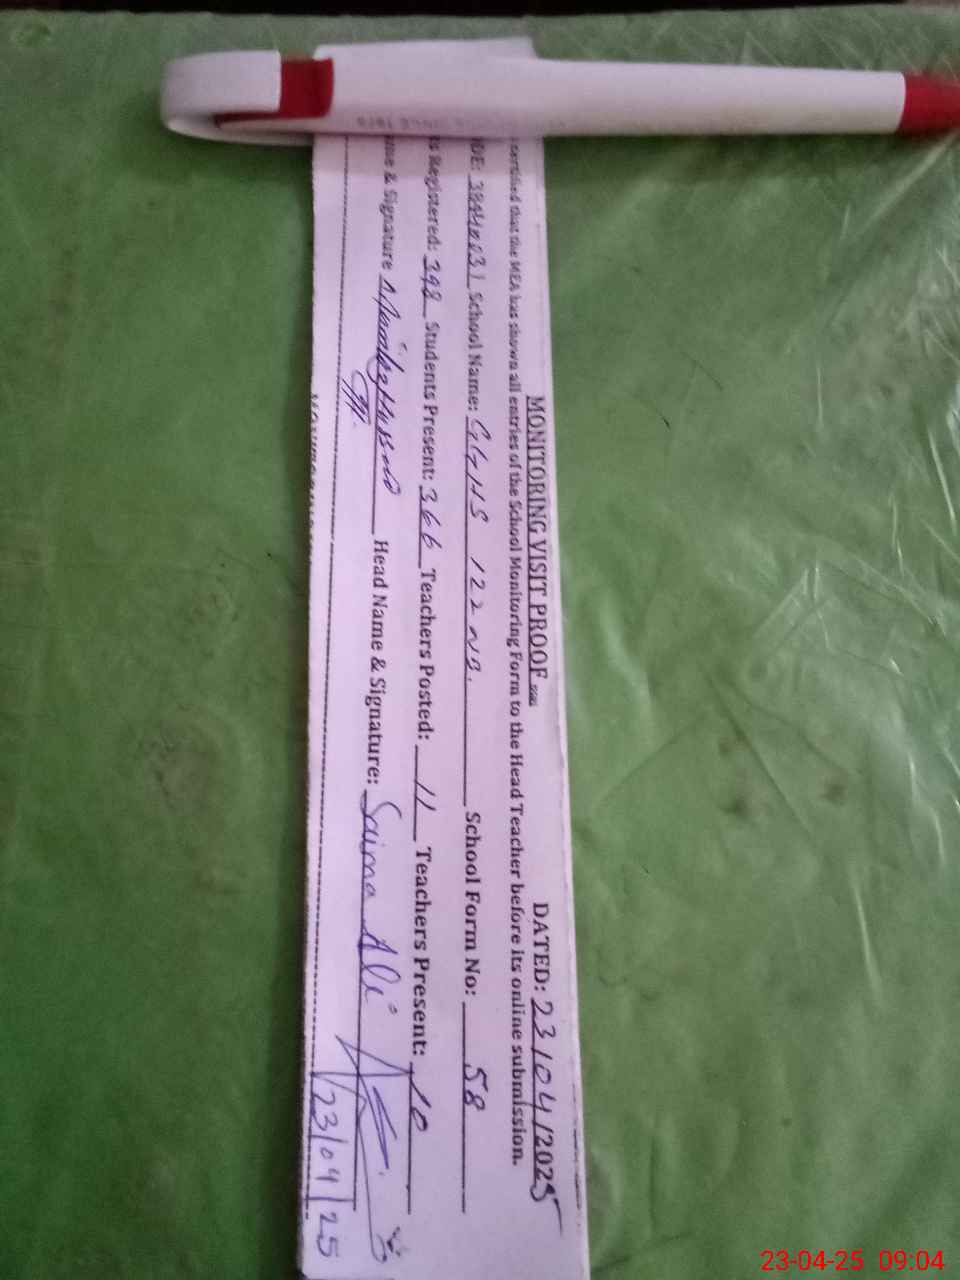 MONITORING VISIT PROOF DATED: 23/04/2025
certified that the MEA has shown all entries of the School Monitoring Form to the Head Teacher before its online submission.
DE: School Name: 122 NB. School Form No: 58
Registered: 398 Students Present: 366 Teachers Posted: 11 Teachers Present: 10
me & Signature Head Name & Signature: Saima Ali
23/04/25
23-04-25 09:04